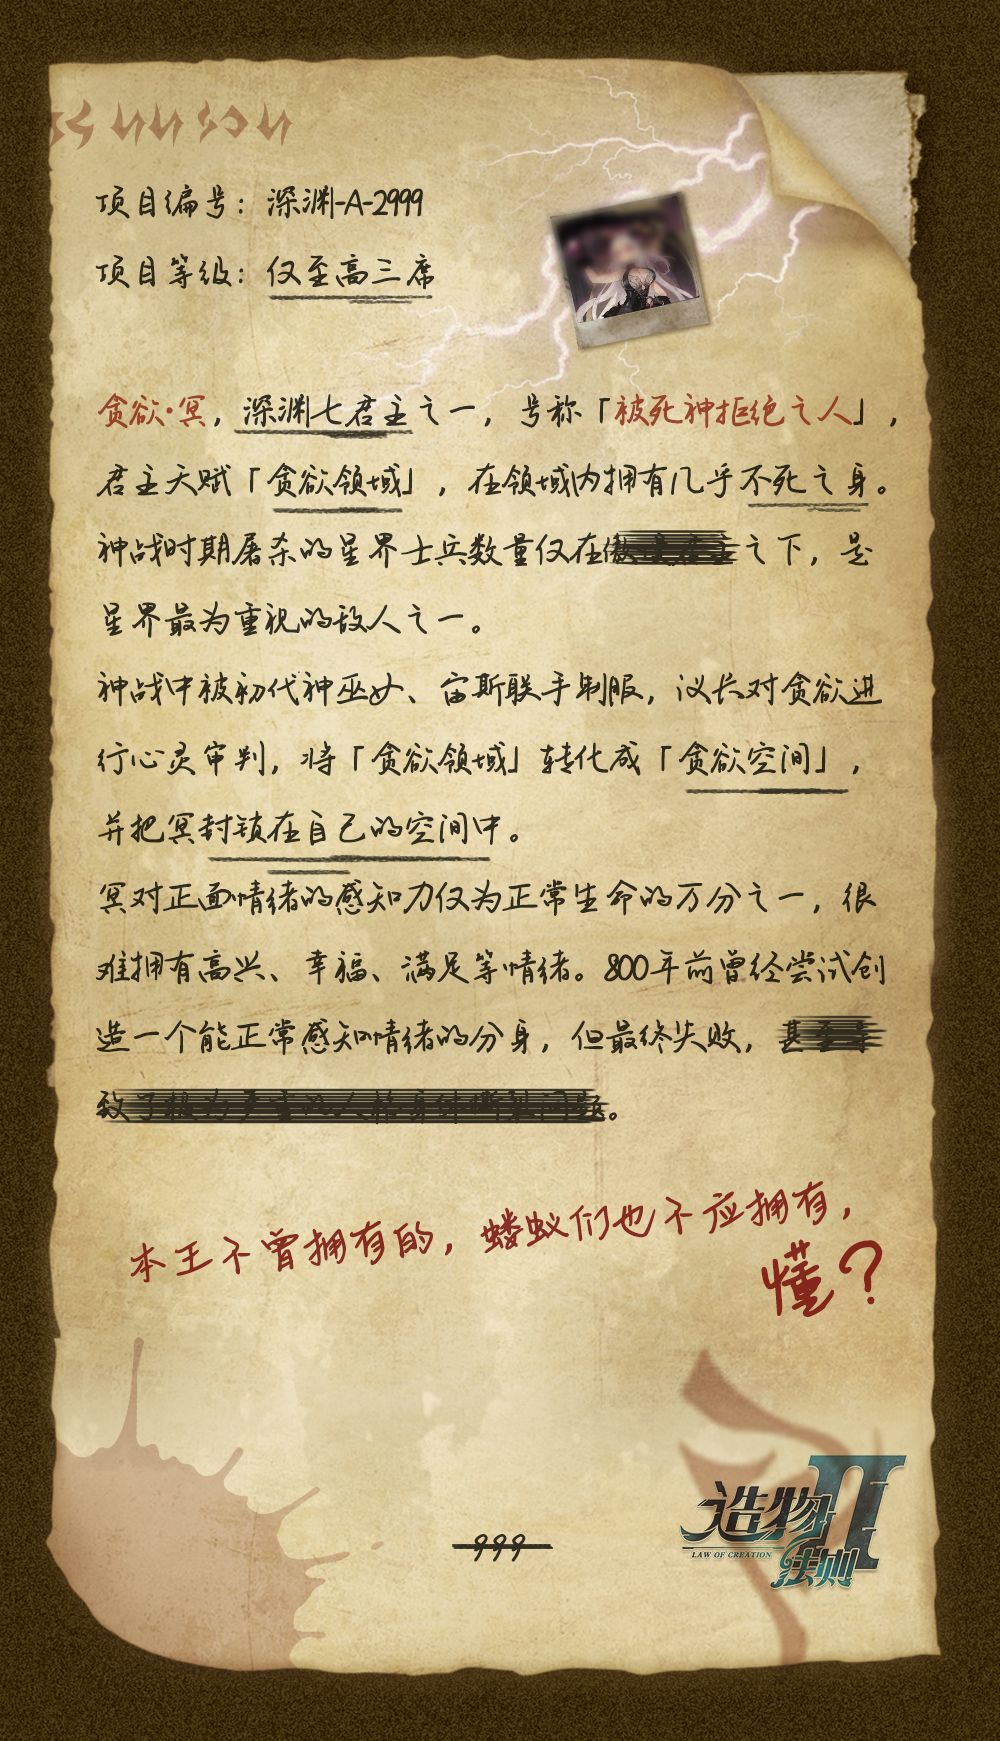 项目编号：深渊-A-2999
项目等级：仅至高三席
贪欲·冥，深渊七君主之一，号称「被死神拒绝之人」，
君主天赋「贪欲领域」，在领域内拥有几乎不死之身。
神战时期屠杀的星界士兵数量仅在傲 之下，是
星界最为重视的敌人之一。
神战中被初代神巫女、宙斯联手制服，议长对贪欲进
行心灵审判，将「贪欲领域」转化成「贪欲空间」，
并把冥封锁在自己的空间中。
冥对正面情绪的感知力仅为正常生命的万分之一，很
难拥有高兴、幸福、满足等情绪。800年前曾经尝试创
造一个能正常感知情绪的分身，但最终失败，甚至导
致了极为严重的人格身体撕裂问题。
本王不曾拥有的，蝼蚁们也不应拥有，
懂？
999
造物II
LAW OF CREATION
法则